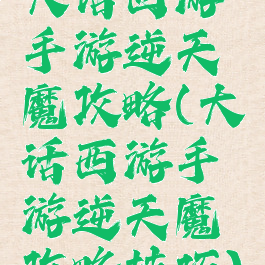 大话西游
手游逆天
魔攻略(大
话西游手
游逆天魔
攻略技巧)